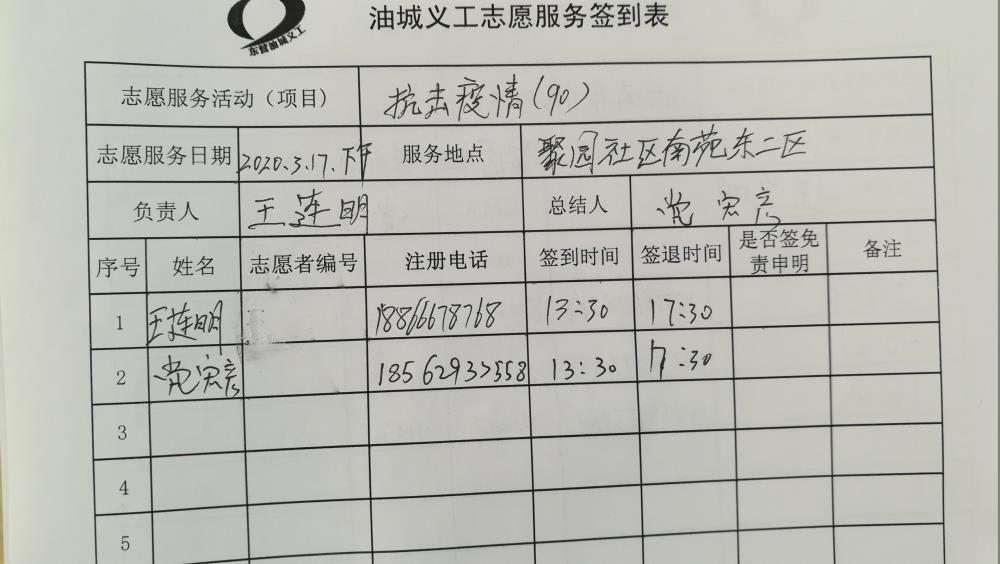 东营油城义工
油城义工志愿服务签到表
志愿服务活动（项目） 抗击疫情(90)
志愿服务日期 2020.3.17.下午 服务地点 聚园社区南苑东二区
负责人 王连明 总结人 党宏彦
序号 姓名 志愿者编号 注册电话 签到时间 签退时间 是否签免责申明 备注
1 王连明 18866678768 13:30 17:30
2 党宏彦 18562933558 13:30 17:30
3
4
5